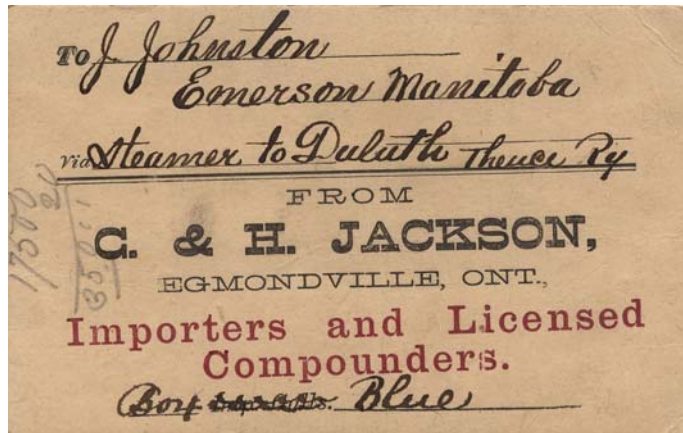 To J. Johnston
Emerson Manitoba
Via Steamer to Duluth Thence Ry
FROM
C. & H. JACKSON,
EGMONDVILLE, ONT.,
Importers and Licensed
Compounders.
Box Blue
17500
20